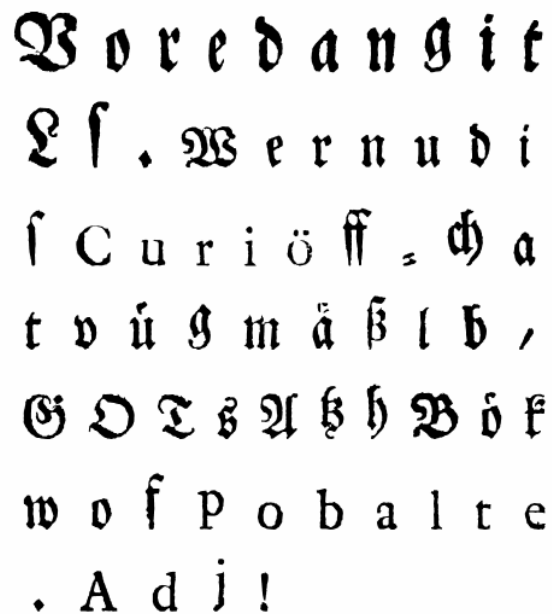 V o r e d a n g i t
L ſ . W e r n u d i
ſ C u r i ö ff ⸗ ch a
t v uͤ g m aͤ ß l b /
G O T s A tz h B oͤ k
w o f P o b a l t e
. A d j !